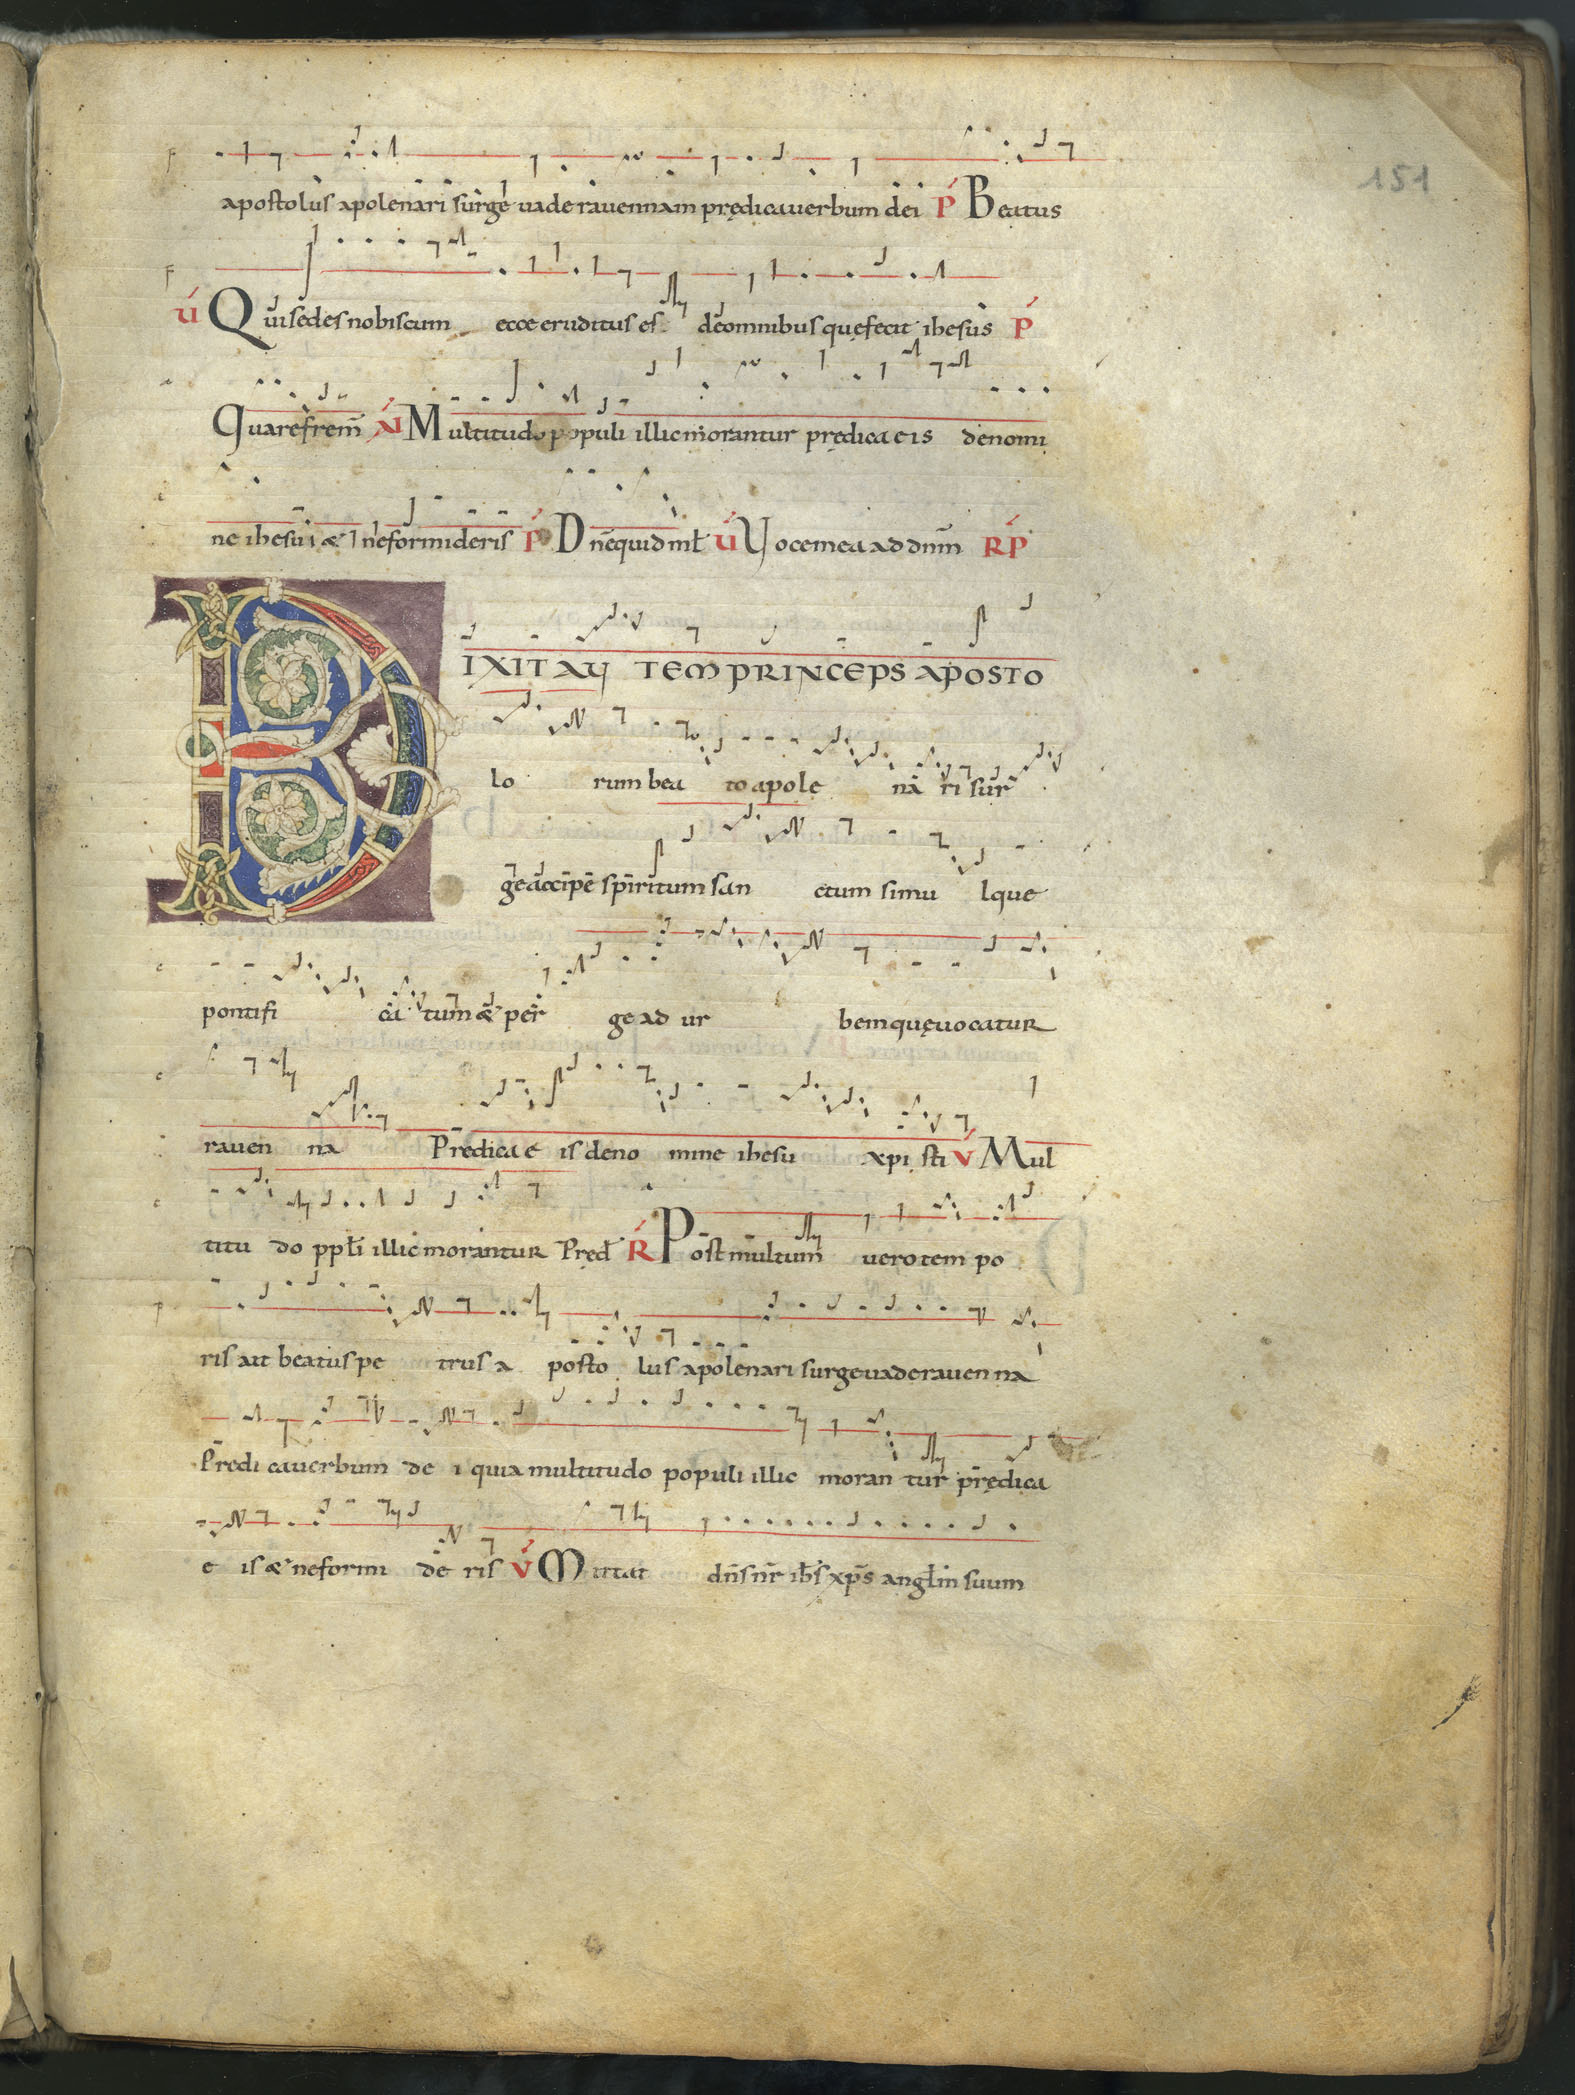 151
apostolus apolenari surge uade rauennam prędica uerbum dei P Beatus
U Qui sedes nobiscum ecce eruditus es de omnibus quę fecit ihesus P
Quare frem̄ AU Multitudo populi illic morantur prędica eis de nomi
ne ihesu i & ne formideris P Dn̄e quid ml̄t U Uoce mea ad dnm̄ RP
DIXIT AU TEM PRINCEPS APOSTO
lo rum bea to apole na ri sur
ge accipe spiritum san ctum simu lque
pontifi ca tum & per ge ad ur bem quę uocatur
rauen na Predica e is de no mine ihesu xpi sti V Mul
titu do ppl̄i illic morantur Pręd R Post multum uero tem po
ris ait beatus pe trus a posto lus apolenari surge uade rauen na
Predi ca uerbum de i quia multitudo populi illic moran tur prędica
e is & ne formi de ris V Mittat dn̄s nr̄ ihs̄ xps̄ angl̄m suum